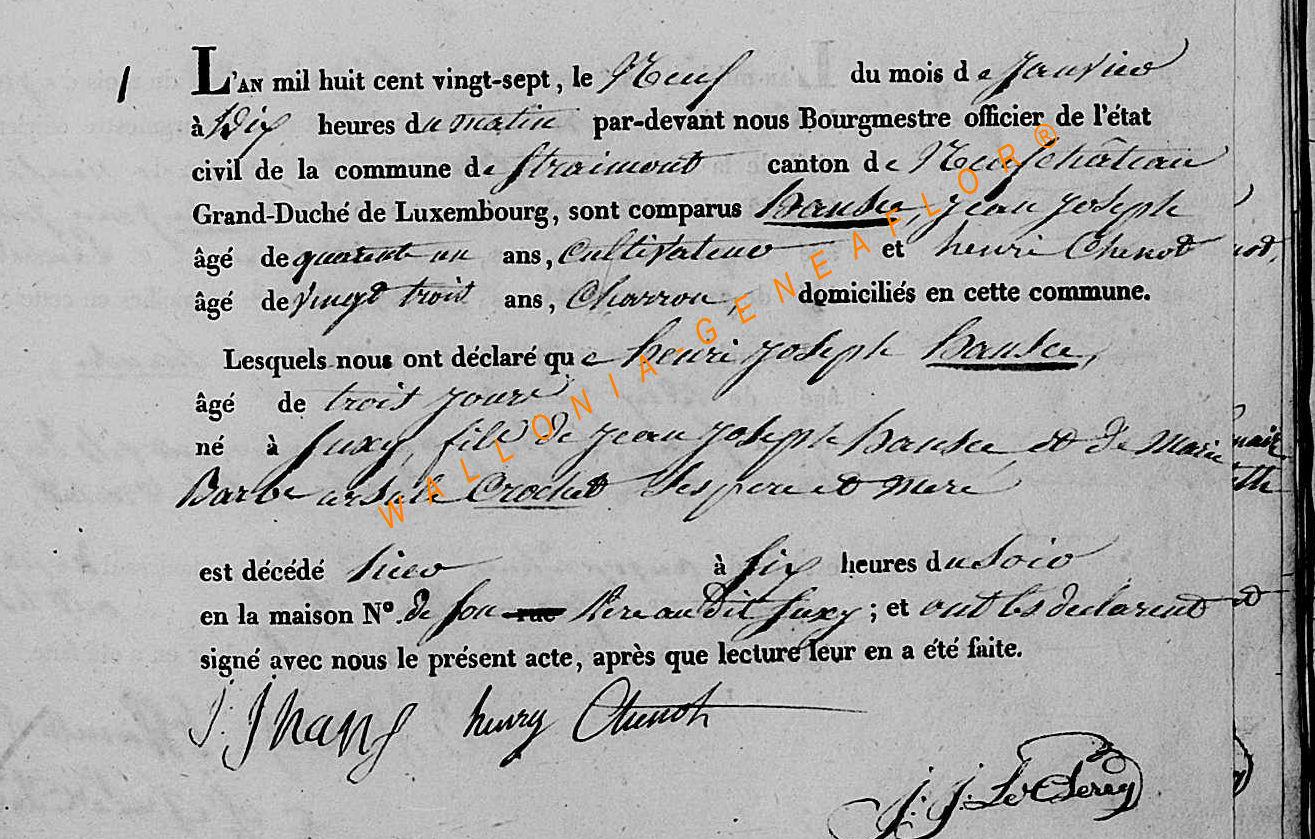 1
L'AN mil huit cent vingt-sept, le Neuf du mois de Janvier
à Dix heures du matin par-devant nous Bourgmestre officier de l'état
civil de la commune de Straimont canton de Neufchâteau
Grand-Duché de Luxembourg, sont comparus Jean Joseph
âgé de quarante un ans, Cultivateur et henri Chenot
âgé de vingt trois ans, Charron, domiciliés en cette commune.
Lesquels nous ont déclaré que henri joseph
âgé de trois jours
né à Suxy, fils de jean joseph et de Marie
Barbe Crochet Ses pere et Mere
est décédé hier à six heures du soir
en la maison N°. de son rue Père au dit Suxy ; et ont les declarent
signé avec nous le présent acte, après que lecture leur en a été faite.
J: J henry Chenot
J. J. Le Clerc
WALLONIA-GENEAFLOR®